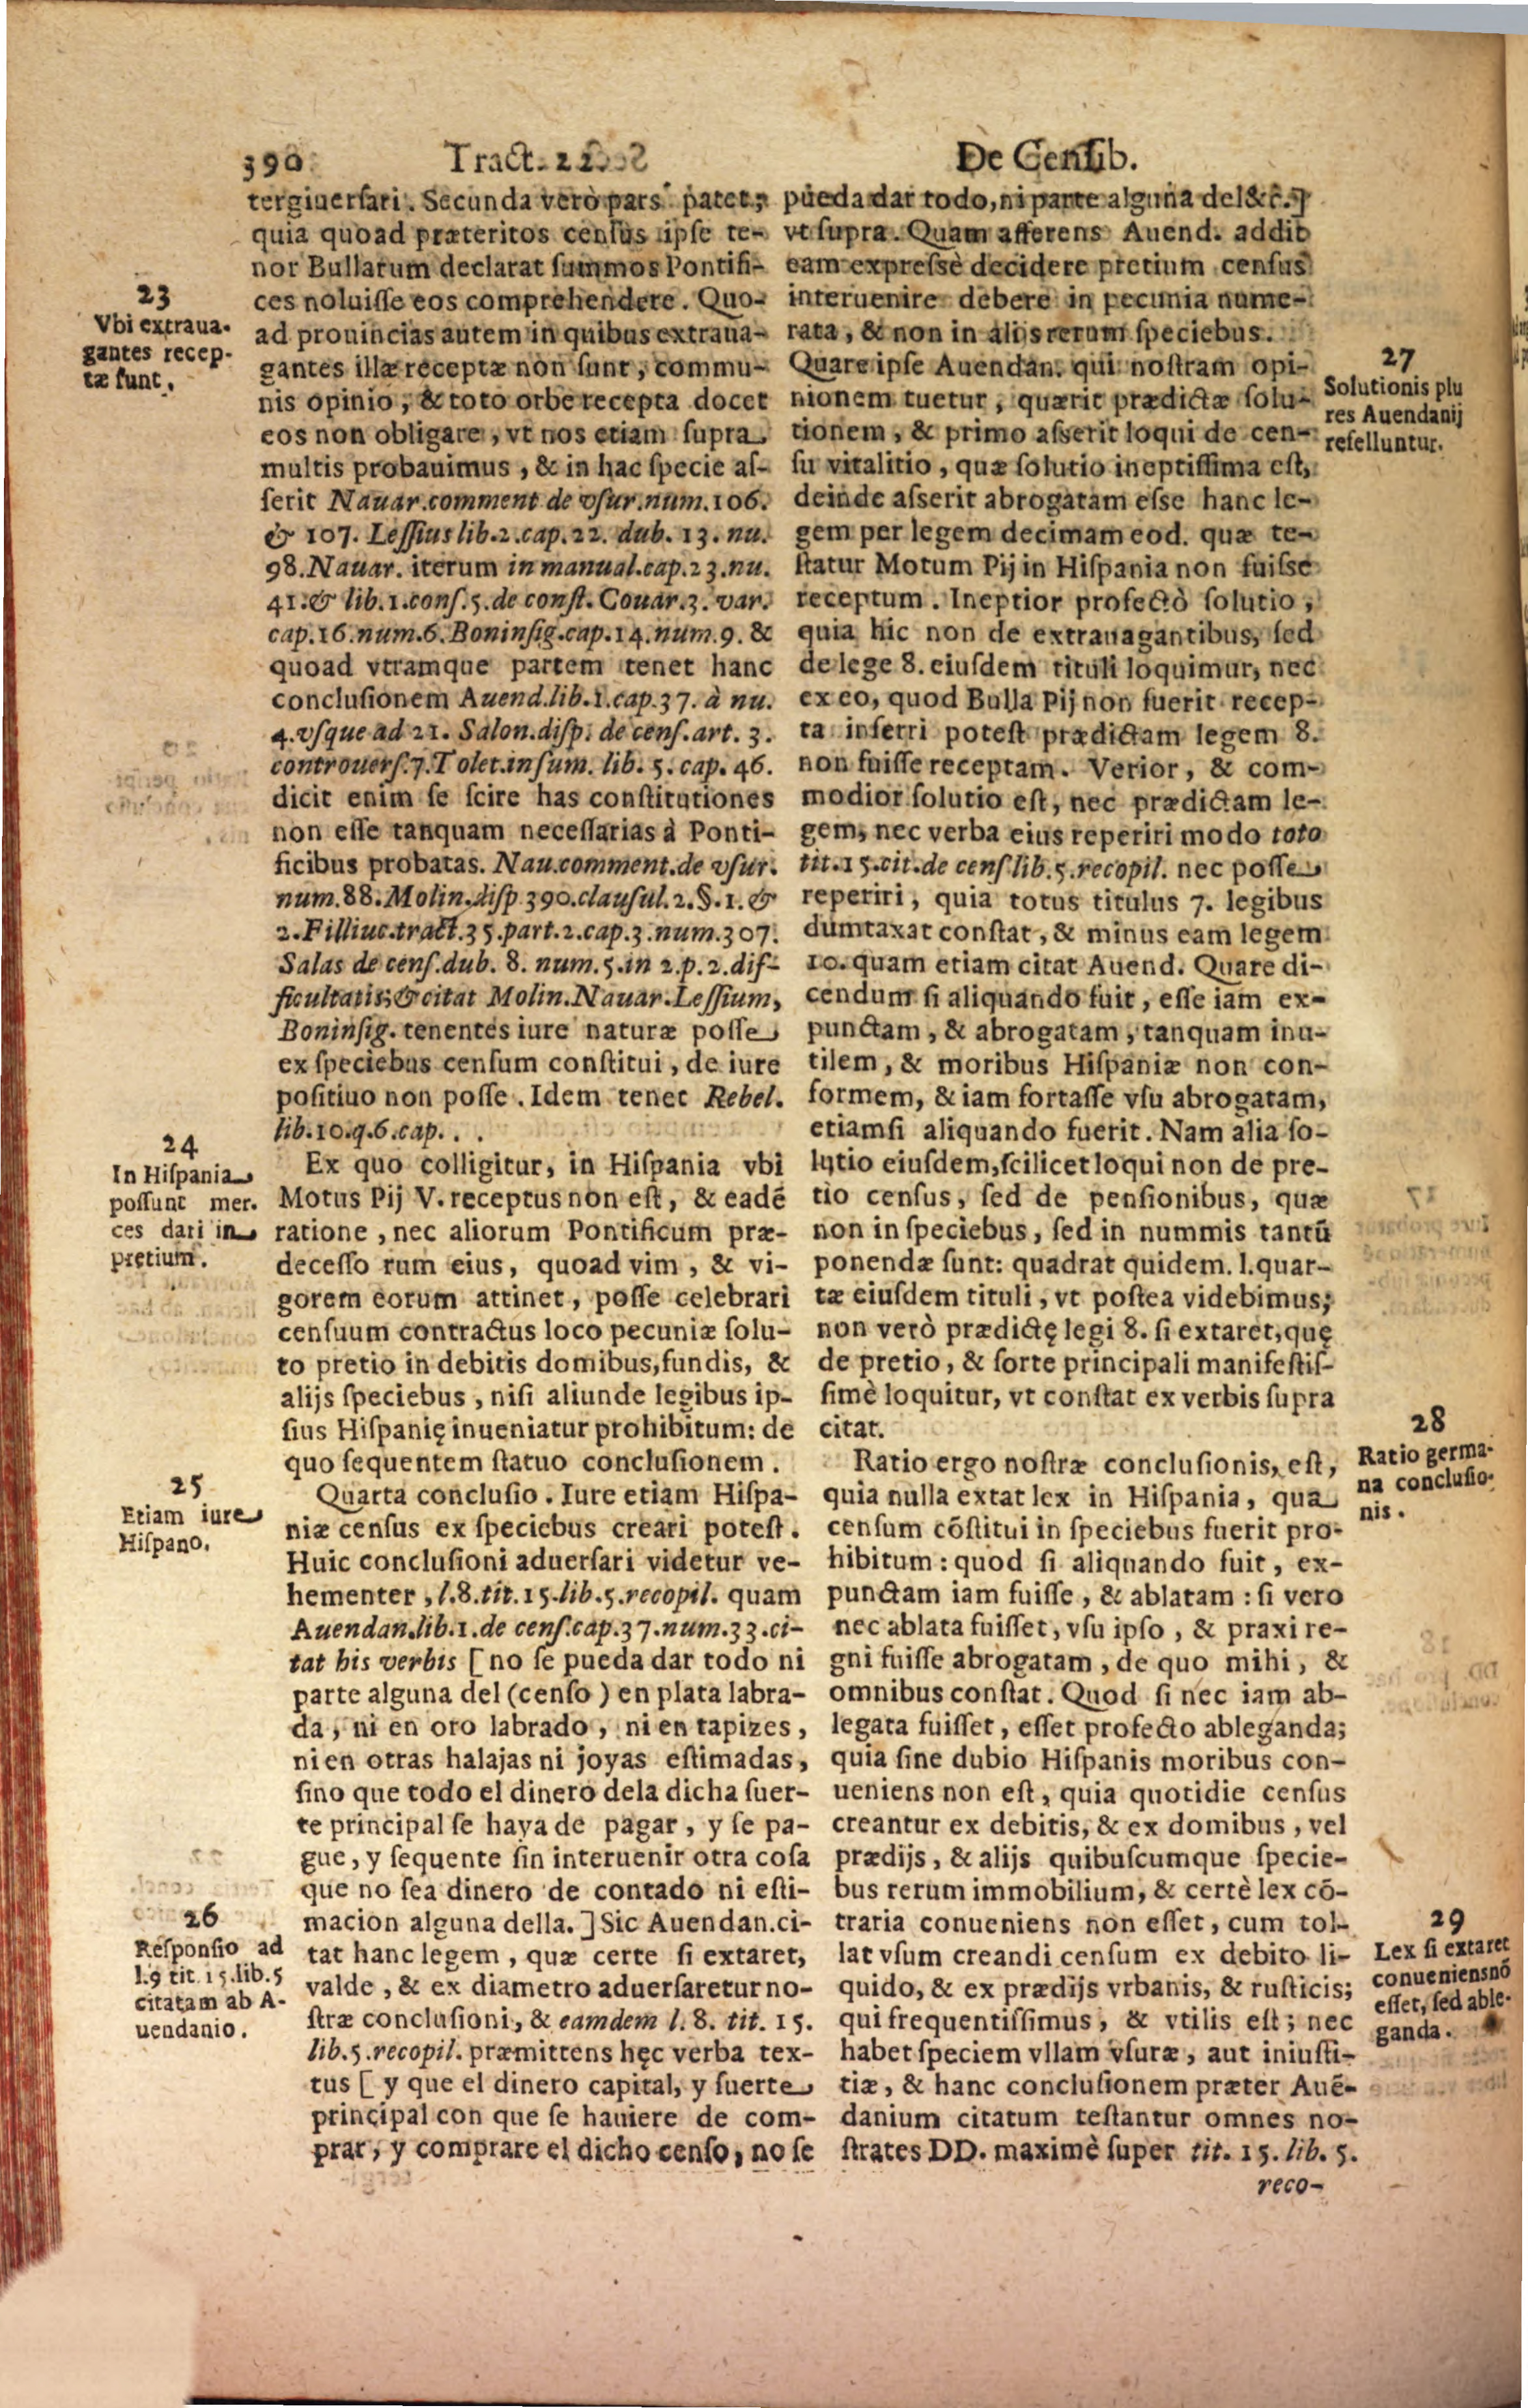 390 Tract. 22. De Censib.
tergiuersari. Secunda verò pars patet;
quia quoad præteritos census ipse te-
nor Bullarum declarat summos Pontifi-
ces noluisse eos comprehendere. Quo-
ad prouincias autem in quibus extraua-
gantes illæ receptæ non sunt, commu-
nis opinio, & toto orbe recepta docet
eos non obligare, vt nos etiam supra
multis probauimus, & in hac specie as-
serit Nauar.comment de vsur.num.106.
& 107. Lessius lib.2.cap.22. dub. 13. nu.
98.Nauar. iterum in manual.cap.23.nu.
41.& lib.1.cons.5.de const. Couar.3. var.
cap.16.num.6.Boninsig.cap.14.num.9. &
quoad vtramque partem tenet hanc
conclusionem Auend.lib.1.cap.37. à nu.
4.vsque ad 21. Salon.disp. de cens.art. 3.
controuers.7.Tolet.in sum. lib. 5. cap. 46.
dicit enim se scire has constitutiones
non esse tanquam necessarias à Ponti-
ficibus probatas. Nau.comment.de vsur.
num.88.Molin.disp 390.clausul.2.§.1.&
2.Filliuc.tract.35.part.2.cap.3.num.307.
Salas de cens.dub. 8. num.5.in 2.p.2.dif-
ficultatis;& citat Molin.Nauar.Lessium,
Boninsig. tenentes iure naturæ posse
ex speciebus censum constitui, de iure
positiuo non posse. Idem tenet Rebel.
lib.10.q.6.cap. . .
Ex quo colligitur, in Hispania vbi
Motus Pij V. receptus non est, & eadē
ratione, nec aliorum Pontificum præ-
decesso rum eius, quoad vim, & vi-
gorem eorum attinet, posse celebrari
censuum contractus loco pecuniæ solu-
to pretio in debitis domibus, fundis, &
alijs speciebus, nisi aliunde legibus ip-
sius Hispanię inueniatur prohibitum: de
quo sequentem statuo conclusionem.
Quarta conclusio. Iure etiam Hispa-
niæ census ex speciebus creari potest.
Huic conclusioni aduersari videtur ve-
hementer, l.8.tit.15.lib.5.recopil. quam
Auendan.lib.1.de cens.cap.37.num.33.ci-
tat his verbis [ no se pueda dar todo ni
parte alguna del (censo) en plata labra-
da, ni en oro labrado, ni en tapizes,
ni en otras halajas ni joyas estimadas,
sino que todo el dinero dela dicha suer-
te principal se haya de pagar, y se pa-
gue, y sequente sin interuenir otra cosa
que no sea dinero de contado ni esti-
macion alguna della. ] Sic Auendan.ci-
tat hanc legem, quæ certe si extaret,
valde, & ex diametro aduersaretur no-
stræ conclusioni, & eamdem l. 8. tit. 15.
lib.5.recopil. præmittens hęc verba tex-
tus [ y que el dinero capital, y suerte
principal con que se hauiere de com-
prar, y comprare el dicho censo, no se
23
Vbi extraua-
gantes recep-
tæ sunt.
24
In Hispania
possunt mer-
ces dari in
pretium.
25
Etiam iure
Hispano.
26
Responsio ad
l.9 tit. 15.lib.5
citatam ab A-
uendanio.
pueda dar todo, ni parte alguna del &c.]
vt supra. Quam afferens Auend. addit
eam expressè decidere pretium census
interuenire debere in pecunia nume-
rata, & non in alijs rerum speciebus.
Quare ipse Auendan. qui nostram opi-
nionem tuetur, quærit prædictæ solu-
tionem, & primo asserit loqui de cen-
su vitalitio, quæ solutio ineptissima est,
deinde asserit abrogatam esse hanc le-
gem per legem decimam eod. quæ te-
statur Motum Pij in Hispania non fuisse
receptum. Ineptior profectò solutio,
quia hic non de extrauagantibus, sed
de lege 8. eiusdem tituli loquimur, nec
ex eo, quod Bulla Pij non fuerit recep-
ta inferri potest prædictam legem 8.
non fuisse receptam. Verior, & com-
modior solutio est, nec prædictam le-
gem, nec verba eius reperiri modo toto
tit.15.cit.de cens.lib.5.recopil. nec posse
reperiri, quia totus titulus 7. legibus
dumtaxat constat, & minus eam legem
10. quam etiam citat Auend. Quare di-
cendum si aliquando fuit, esse iam ex-
punctam, & abrogatam, tanquam inu-
tilem, & moribus Hispaniæ non con-
formem, & iam fortasse vsu abrogatam,
etiamsi aliquando fuerit. Nam alia so-
lutio eiusdem, scilicet loqui non de pre-
tio census, sed de pensionibus, quæ
non in speciebus, sed in nummis tantū
ponendæ sunt: quadrat quidem. l.quar-
tæ eiusdem tituli, vt postea videbimus;
non verò prædictę legi 8. si extaret, quę
de pretio, & sorte principali manifestis-
simè loquitur, vt constat ex verbis supra
citat.
Ratio ergo nostræ conclusionis, est,
quia nulla extat lex in Hispania, qua
censum cōstitui in speciebus fuerit pro-
hibitum: quod si aliquando fuit, ex-
punctam iam fuisse, & ablatam: si vero
nec ablata fuisset, vsu ipso, & praxi re-
gni fuisse abrogatam, de quo mihi, &
omnibus constat. Quod si nec iam ab-
legata fuisset, esset profecto ableganda;
quia sine dubio Hispanis moribus con-
ueniens non est, quia quotidie census
creantur ex debitis, & ex domibus, vel
prædijs, & alijs quibuscumque specie-
bus rerum immobilium, & certè lex cō-
traria conueniens non esset, cum tol-
lat vsum creandi censum ex debito li-
quido, & ex prædijs vrbanis, & rusticis;
qui frequentissimus, & vtilis est; nec
habet speciem vllam vsuræ, aut iniusti-
tiæ, & hanc conclusionem præter Auē-
danium citatum testantur omnes no-
strates DD. maximè super tit. 15. lib. 5.
reco-
27
Solutionis plu
res Auendanij
refelluntur.
28
Ratio germa-
na conclusio-
nis.
29
Lex si extaret
conueniens nō
esset, sed able-
ganda.